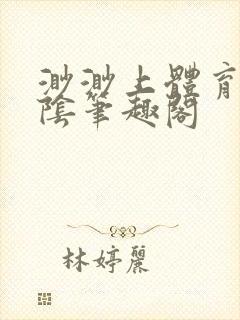 渺渺上體育
陰筆趣閣
林婷麗